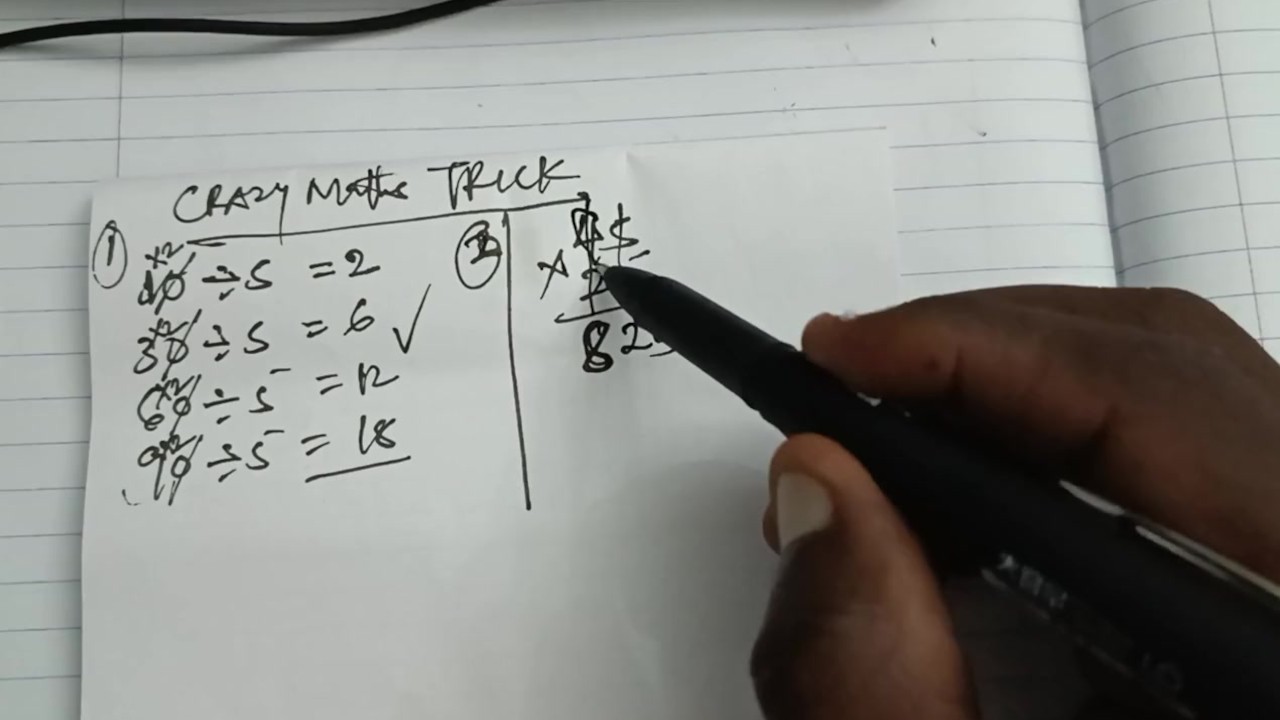 CRAZY Maths TRICK
1
×2
10 ÷ 5 = 2
×2
30 ÷ 5 = 6 ✓
×2
60 ÷ 5 = 12
×2
90 ÷ 5 = 18
2
45
× 2
82